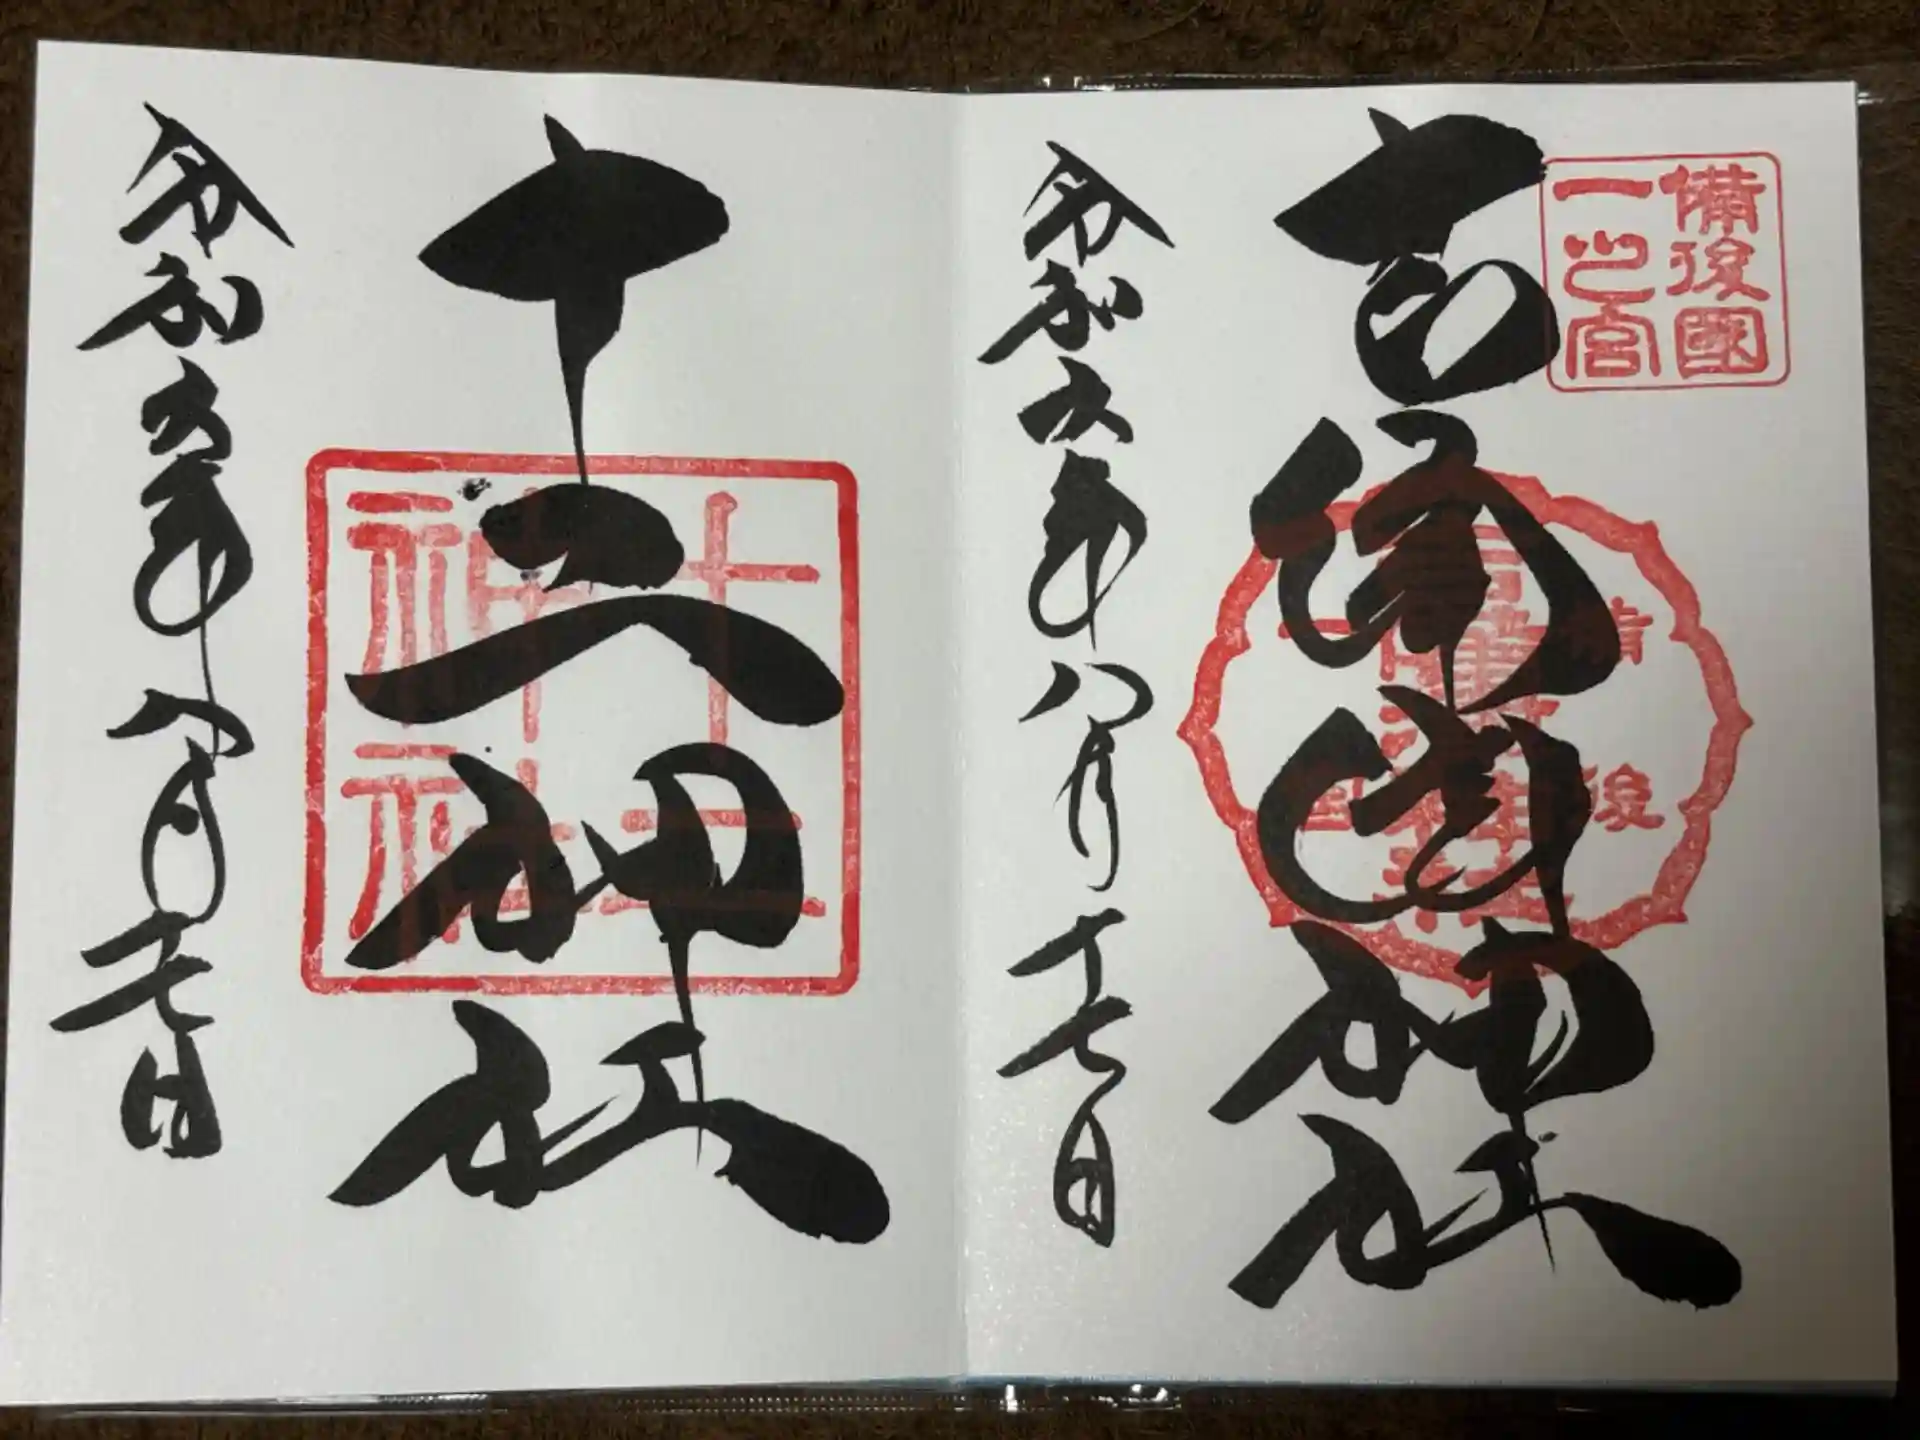 備後國
一之宮
吉備津神社
備後
吉備津神社
令和六年八月十七日
十二神社
十二
神社
令和六年八月十七日